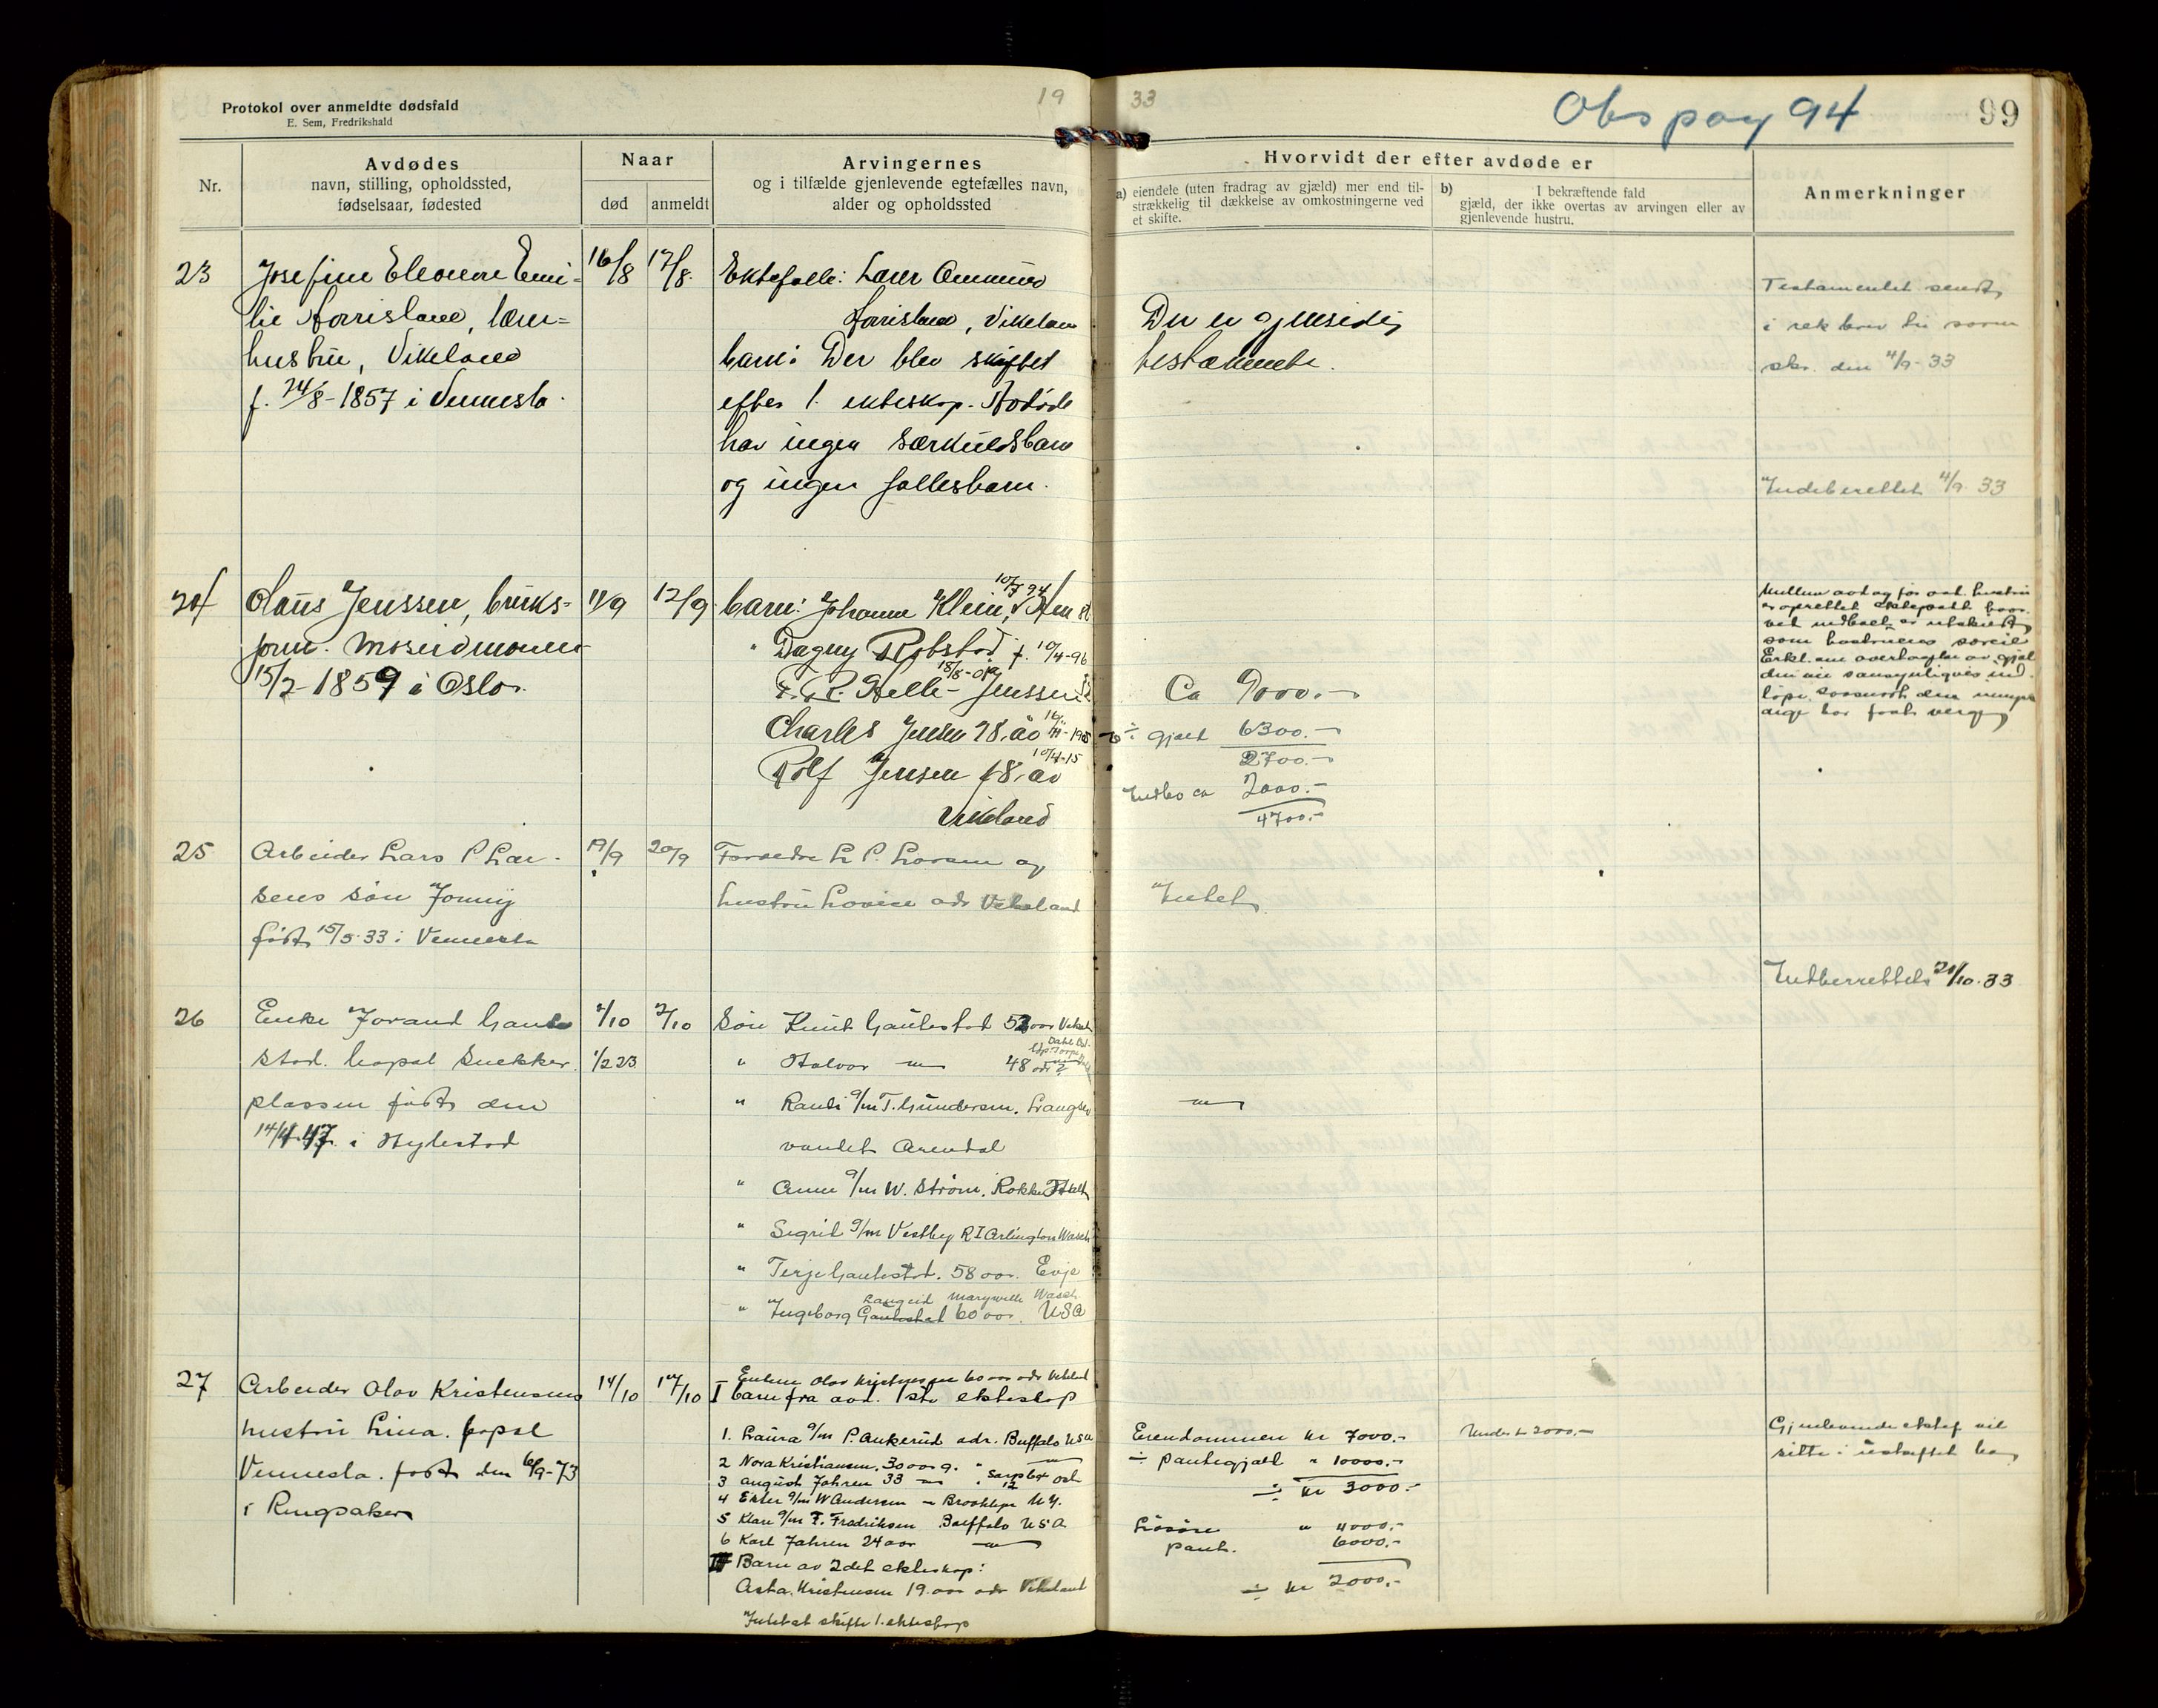 Protokol over anmeldte dødsfald
E. Sem, Fredrikshald
19 33
Obs pag 94
99
Nr.
Avdødes
navn, stilling, opholdssted,
fødselsaar, fødested
Naar
død
anmeldt
Arvingernes
og i tilfælde gjenlevende egtefælles navn,
alder og opholdssted
Hvorvidt der efter avdøde er
a) eiendele (uten fradrag av gjæld) mer end til-
strækkelig til dækkelse av omkostningerne ved
et skifte.
b) I bekræftende fald
gjæld, der ikke overtas av arvingen eller av
gjenlevende hustru.
Anmerkninger
23
Josefine Eleonore Emi-
lie Homisland, lærer-
hustru, Vikeland
f. 24/8-1857 i Vennesla
16/8
17/8
Ektefelle: Lærer
Vikeland
barn: Der blev skiftet
efter 1. ekteskap. Avdøde
har ingen særkuldsbarn
og ingen fellesbarn.
Der er gjensidig
testamente.
Testamentet sendt
i rek brev til soren
skr. den 4/9-33
Indberettet 4/9 33
24
Olaus Jenssen, bruks-
form. Moseidmoen
15/2-1859 i Oslo.
11/9
12/9
barn: Johanne Klein, 10/7 94
" Dagny Robstad f. 10/4-96
Helle-Jenssen
Charles Jensen 28 år
Rolf Jensen 18 år 10/4-15
Vikeland
Ca 9000.-
÷ gjæld 6300.-
2700.-
Indbo ca 2000.-
4700.-
Mellem avd og før avd. hustru
er oprettet ektepakt hvor
ved indboet er utskilt
som hustruens særeie
Erkl. om overtagelse av gjæl
den vil sansynligvis ind-
løpe saasnart den
aarige har faat verge
25
Arbeider Lars P. Lar-
sens søn Jonny
født 15/5-33 i Vennesla
19/9
20/9
Foreldre L. P. Larsen og
hustru Lovise adr Vikeland
Intet
26
Enke Jorand Gaute
stad. bopæl Snekker
plassen født den
14/4 47 i Hylestad
2/10
1/2 23
2/10
Søn Knut Gautestad 52 aar
" Halvor -"- 48
" Randi g/m T. Gundersen. Langsæ
vandet Arendal
" Anne g/m W. Strøm.
" Sigrid g/m Vestby R I Arlington Wash
" Terje Gautestad. 58 aar. Evje
" Ingeborg Gautestad 60 aar. USA
Langeid Marysville Wash
-"-
Indberettet 20/10.33
27
Arbeider Olav Kristensens
hustru Lina. bopæl
Vennesla. født den 6/9-73
i Ringsaker
14/10
17/10
Enkem Olav Kristensen 60 aar adr Vikeland
I barn fra avd. 1ste ekteskap
1. Laura g/m P. Aukerud adr. Buffalo USA
2 Nora Kristiansen, 30 aar g. " -"-
3 August Jahren 33 -"-
4 Ester g/m W Andersen - Brooklyn N.Y.
5 Klara g/m F. Fredriksen Buffalo USA
6 Karl Jahren 24 aar -"-
II Barn av 2det ekteskap:
Asta Kristensen 19 aar adr Vikeland
Intet at skifte 1. ekteskap
Eiendommen kr 7000.-
÷ pantegjæld " 10000.-
÷ kr 3000.-
Løsøre " 4000.-
pant. 6000.-
÷ kr 2000.-
Under 2000.-
Gjenlevende ektef vil
sitte i uskiftet bo